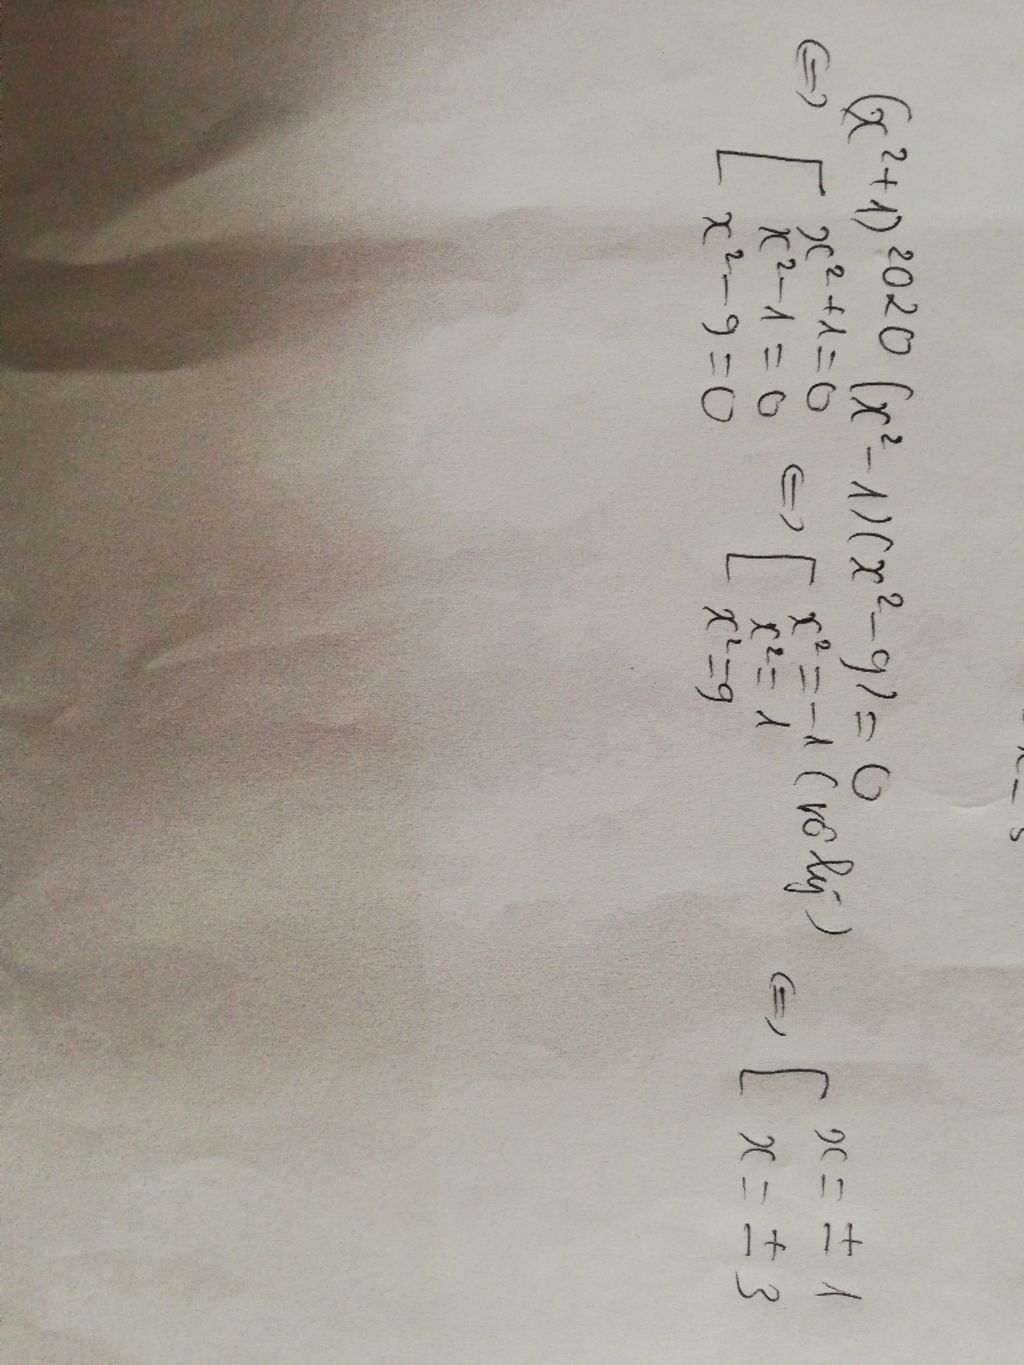 (x²+1)²⁰²⁰ (x²-1)(x²-9) = 0
⇔ [ x²+1=0
x²-1=0
x²-9=0 ⇔ [ x²=-1 (vô lý)
x²=1
x²=9 ⇔ [ x = ±1
x = ±3